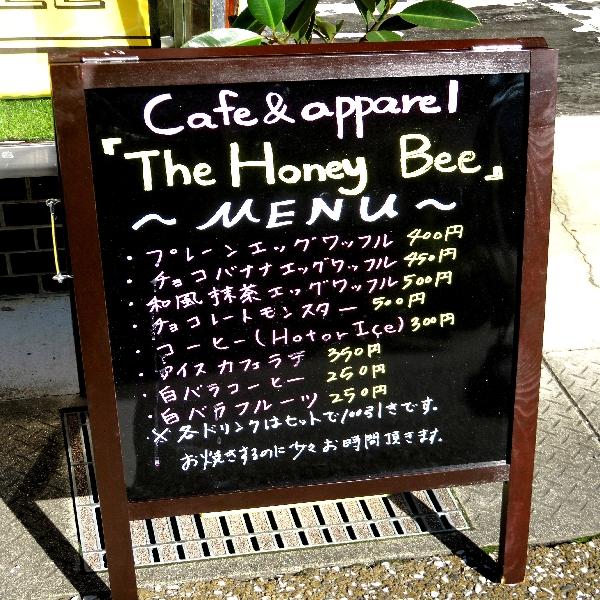 Cafe & apparel
『The Honey Bee』
～ MENU ～
・プレーンエッグワッフル 400円
・チョコバナナエッグワッフル 450円
・和風抹茶エッグワッフル 500円
・チョコレートモンスター 500円
・コーヒー(Hot or Ice) 300円
・アイスカフェラテ 350円
・白バラコーヒー 250円
・白バラフルーツ 250円
※各ドリンクはセットで100引きです。
お焼きするのに少々お時間頂きます。